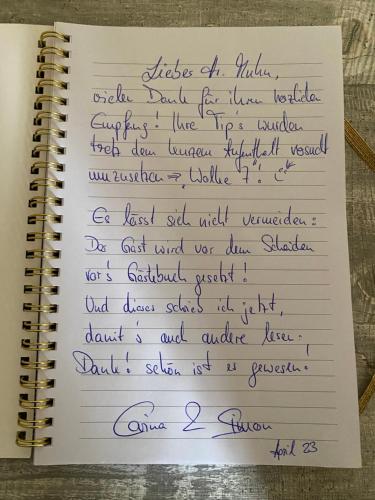 Liebes Hr. Huhn,
vielen Dank für ihren herzlichen
Empfang! Ihre Tip's wurden
trotz dem kurzem Aufenthalt versucht
umzusetzen ⇒ „Wolke 7"!
Es lässt sich nicht vermeiden:
Der Gast wird vor dem Scheiden
vor's Gästebuch gesetzt!
Und dieses schrieb ich jetzt,
damit's auch andere lesen:
Danke! schön ist es gewesen!
Carina & Simon
April 23